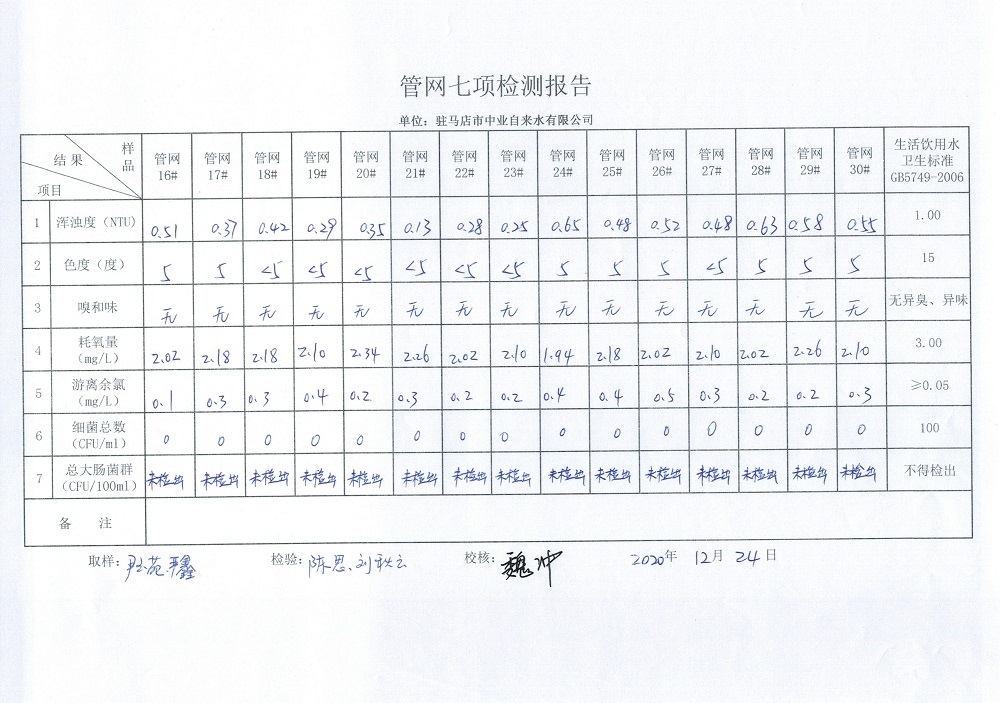 管网七项检测报告
单位：驻马店市中业自来水有限公司
样品 结果 项目 管网16# 管网17# 管网18# 管网19# 管网20# 管网21# 管网22# 管网23# 管网24# 管网25# 管网26# 管网27# 管网28# 管网29# 管网30# 生活饮用水卫生标准GB5749-2006
1 浑浊度（NTU) 0.51 0.37 0.42 0.29 0.35 0.13 0.28 0.25 0.65 0.48 0.52 0.48 0.63 0.58 0.55 1.00
2 色度（度） 5 5 <5 <5 <5 <5 <5 <5 5 5 5 <5 5 5 5 15
3 嗅和味 无 无 无 无 无 无 无 无 无 无 无 无 无 无 无 无异臭、异味
4 耗氧量（mg/L） 2.02 2.18 2.18 2.10 2.34 2.26 2.02 2.10 1.94 2.18 2.02 2.10 2.02 2.26 2.10 3.00
5 游离余氯（mg/L） 0.1 0.3 0.3 0.4 0.2 0.3 0.2 0.2 0.4 0.4 0.5 0.3 0.2 0.2 0.3 ≥0.05
6 细菌总数（CFU/ml） 0 0 0 0 0 0 0 0 0 0 0 0 0 0 0 100
7 总大肠菌群（CFU/100ml） 未检出 未检出 未检出 未检出 未检出 未检出 未检出 未检出 未检出 未检出 未检出 未检出 未检出 未检出 未检出 不得检出
备 注
取样： 检验：陈思、刘秋云 校核：魏冲 2020年 12月 24日